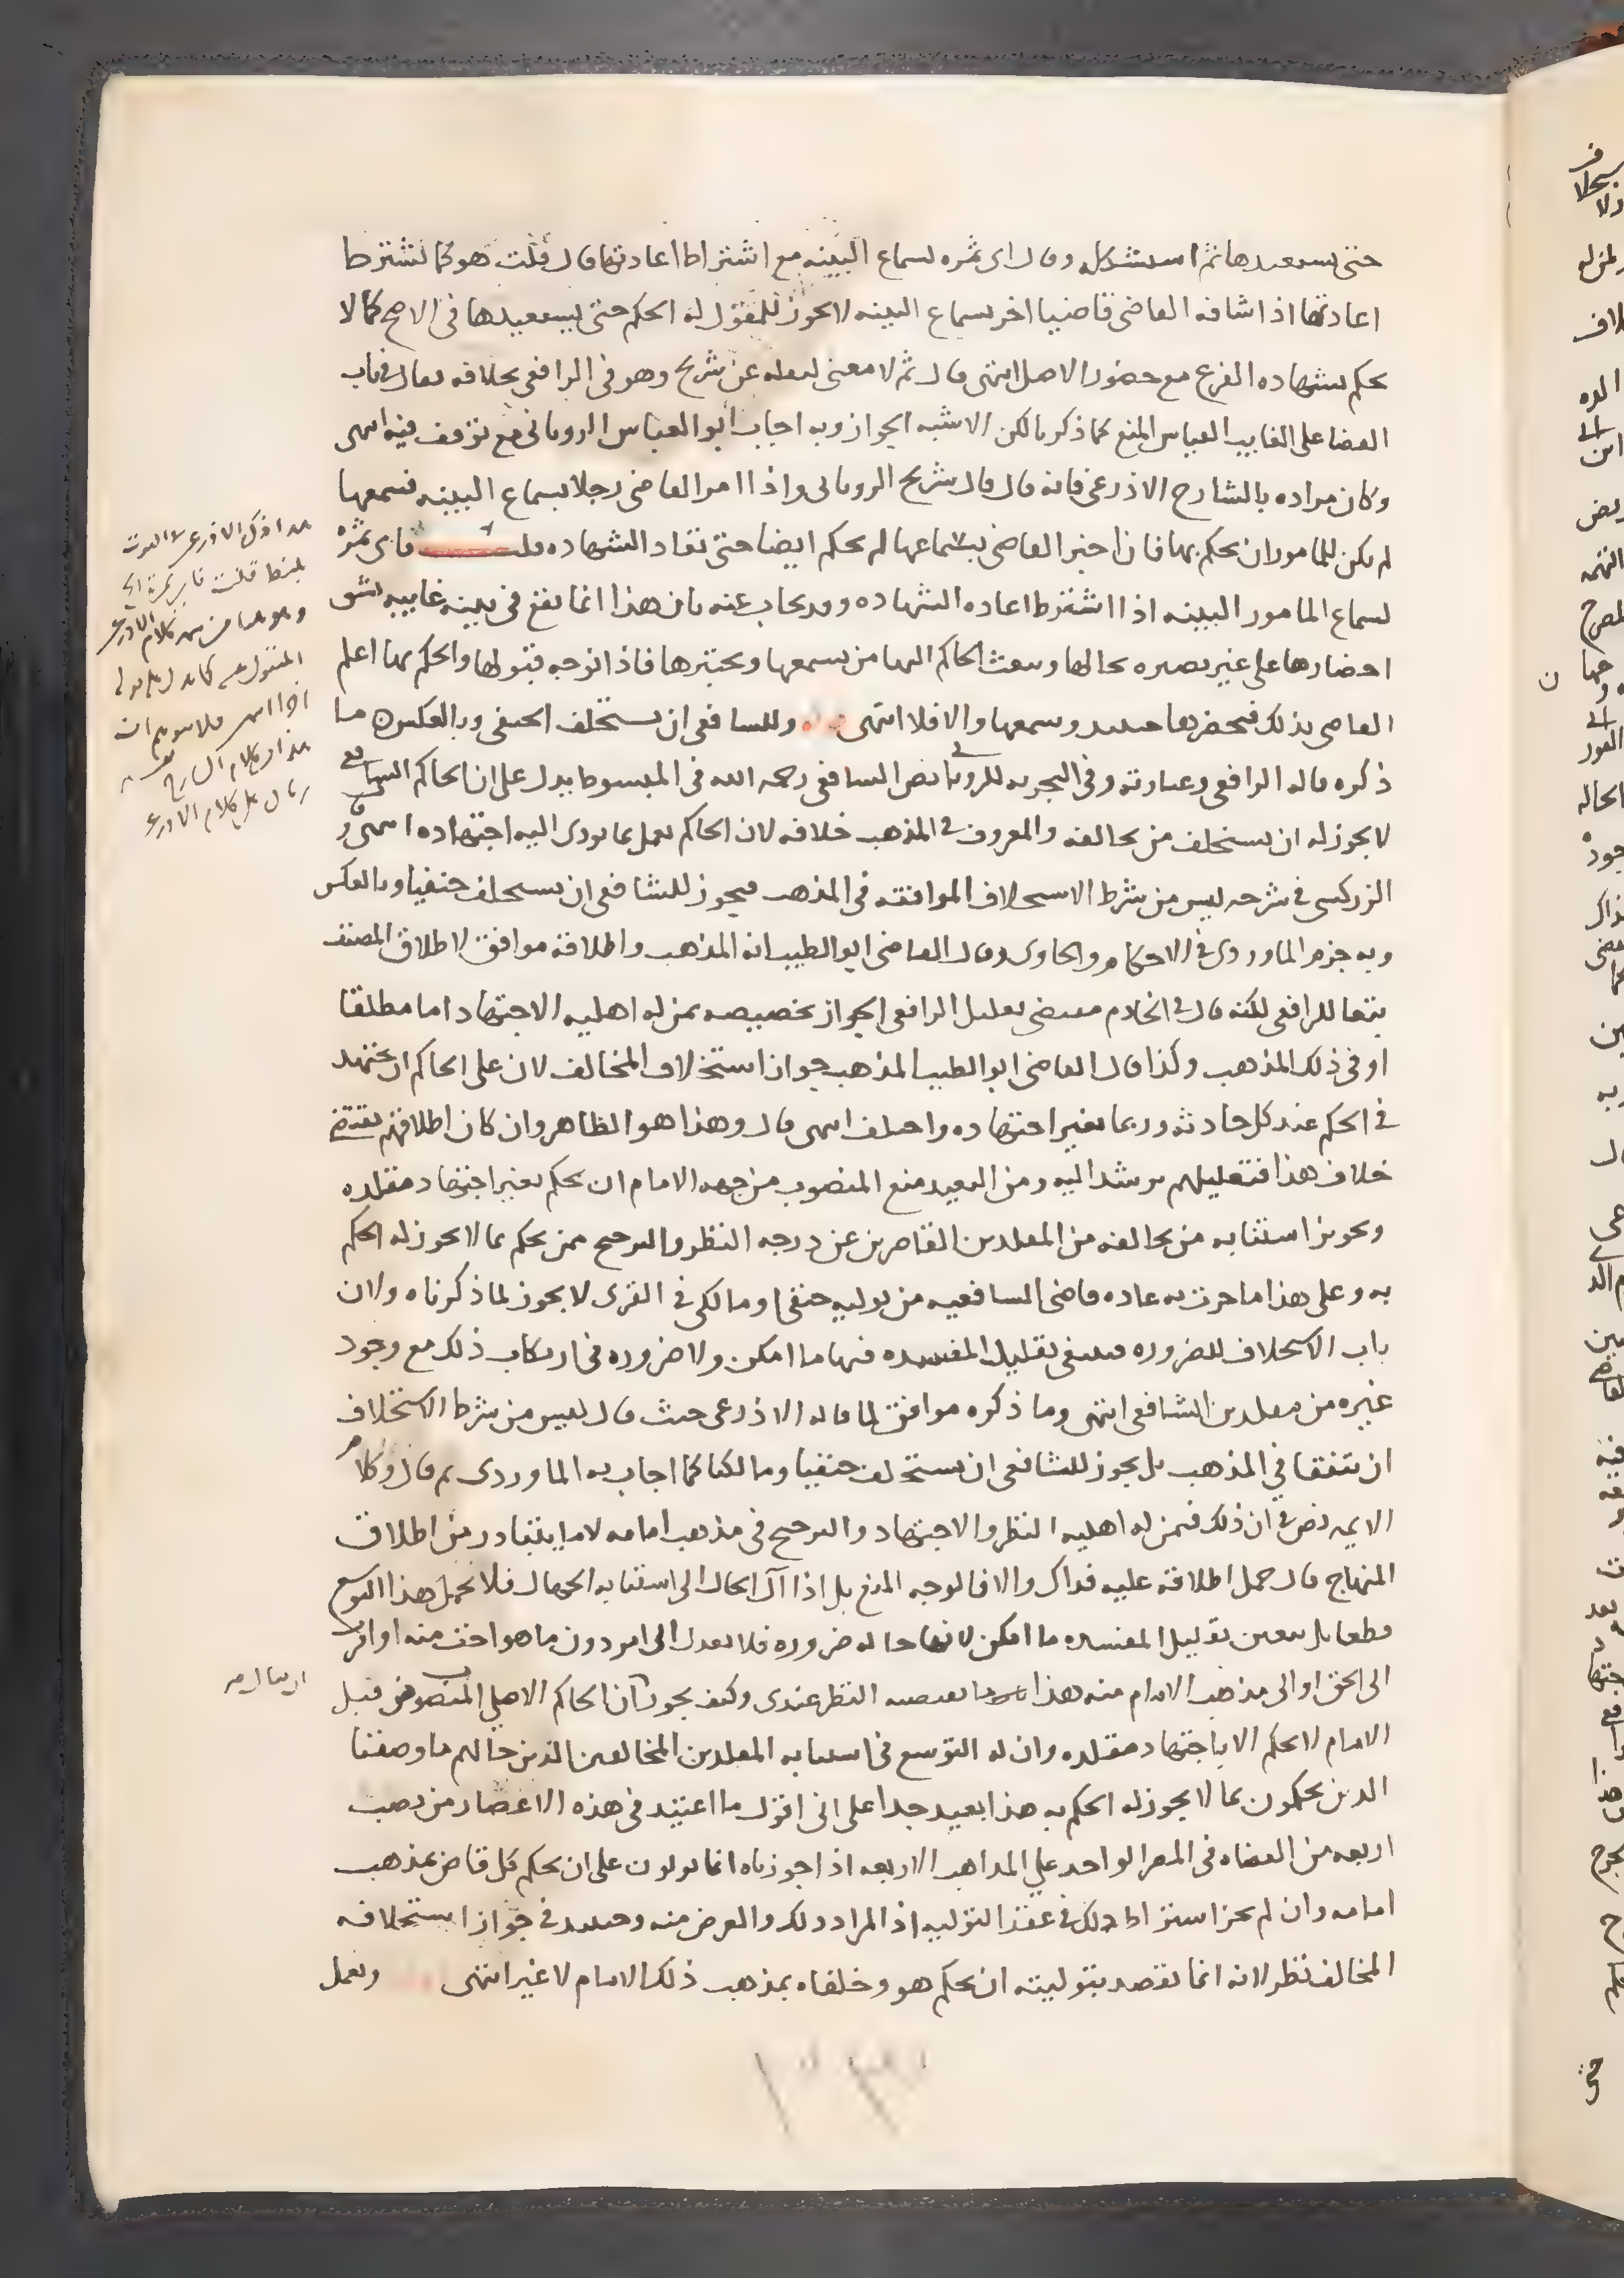 حتى يستعيدها ثم استشكله وقال اي ثمره لسماع البينه مع اشتراط اعادتها قال قلت هو كما تشترط
اعادتها اذا شافه القاضي قاضيا اخر بسماع البينه لا يجوز للمقول له الحكم حتى يستعيدها في الاصح كما لا
يحكم بشهاده الفرع مع حضور الاصل انتهى قال ثم لا معنى لنقله عن شريح وهو في الرافعي بخلافه فقال في باب
القضا على الغايب القياس المنع كما ذكرنا لكن الاشبه الجواز وبه اجاب ابو العباس الروياني مع توقف فيه انتهى
وكان مراده بالشارح الاذرعي فانه قال قال شريح الروياني واذا امر القاضي رجلا بسماع البينه فسمعها
لم يكن للمامور ان يحكم بها فاذا اخبر القاضي بسماعها لم يحكم ايضا حتى تعاد الشهاده قلت فاي ثمره
لسماع المامور البينه اذا اشترط اعاده الشهاده وقد يجاب عنه بان هذا انما يقع في بينه غايبه يشق
احضارها على غير بصيره بحالها وبعث الحاكم اليها من يسمعها ويختبرها فاذا توجه قبولها والحكم بها اعلم
القاضي بذلك فيحضرها حينئذ ويسمعها والا فلا انتهى وللشافعي ان يستخلف الحنفي وبالعكس ما
ذكره قاله الرافعي وعبارته وفي التجربه للروياني نص الشافعي رحمه الله في المبسوط يدل على ان الحاكم الشافعي
لا يجوز له ان يستخلف من يخالفه والمعروف في المذهب خلافه لان الحاكم يعمل بما يودي اليه اجتهاده انتهى وقال
الزركشي في شرحه ليس من شرط الاستخلاف الموافقه في المذهب فيجوز للشافعي ان يستخلف حنفيا وبالعكس
وبه جزم الماوردي في الاحكام والحاوي وقال القاضي ابو الطيب انه المذهب واطلاقه موافق لاطلاق المصنف
تبعا للرافعي لكنه قال في الخادم مقتضى تعليل الرافعي الجواز تخصيصه بمن له اهليه الاجتهاد اما مطلقا
او في ذلك المذهب وكذا قال القاضي ابو الطيب المذهب جواز استخلاف المخالف لان على الحاكم ان يجتهد
في الحكم عند كل حادثه وربما تغير اجتهاده واختلف انتهى قال وهذا هو الظاهر وان كان اطلاقهم يقتضي
خلاف هذا فتعليلهم يرشد اليه ومن البعيد منع المنصوب من جهه الامام ان يحكم بغير اجتهاد مقلده
وتجويز استنابه من يخالفه من المقلدين القاصرين عن درجه النظر والترجيح ممن يحكم بما لا يجوز له الحكم
به وعلى هذا ما جرت به عاده قاضي الشافعيه من يوليه حنفي او مالكي في القرى لا يجوز لما ذكرناه ولان
باب الاستخلاف للضروره فينبغي تقليل المفسده فيها ما امكن ولا ضروره في ارتكاب ذلك مع وجود
غيره من مقلدين الشافعي انتهى وما ذكره موافق لما قاله الاذرعي حيث قال ليس من شرط الاستخلاف
ان يتفقا في المذهب بل يجوز للشافعي ان يستخلف حنفيا ومالكيا كما اجاب به الماوردي ثم قال وكلام
الايمه نص في ان ذلك فيمن له اهليه النظر والاجتهاد والترجيح في مذهب امامه لا ما يتبادر من اطلاق
المنهاج قال حمل اطلاقه عليه فذاك والا فالوجه المنع بل اذا آل الحال الى استنابه الجهال فلا نحمل هذا التوسع
قطعا بل يتعين تقليل المفسده ما امكن لانها حاله ضروره فلا يعدل الى امر دون ما هو اخف منه او اقرب
الى الحق او الى مذهب الامام منه هذا ما يقتضيه النظر عندي وكيف يجوز ان الحاكم الاصلي المنصوب من قبل
الامام لا يحكم الا باجتهاد مقلده وان له التوسع في استنابه المقلدين المخالفين الذين حالهم ما وصفنا
الذين يحكمون بما لا يجوز له الحكم به هذا بعيد جدا على اني اقول ما اعتيد في هذه الاعصار من نصب
اربعه من القضاه في المصر الواحد على المذاهب الاربعه اذا جوزناه انما يولون على ان يحكم كل قاض بمذهب
امامه وان لم يجز اشتراط ذلك في عقد التوليه اذ المراد ذلك والغرض منه وحينئذ في جواز استخلافه
المخالف نظر لانه انما يقصد بتوليته ان يحكم هو وخلفاه بمذهب ذلك الامام لا غير انتهى ويعمل